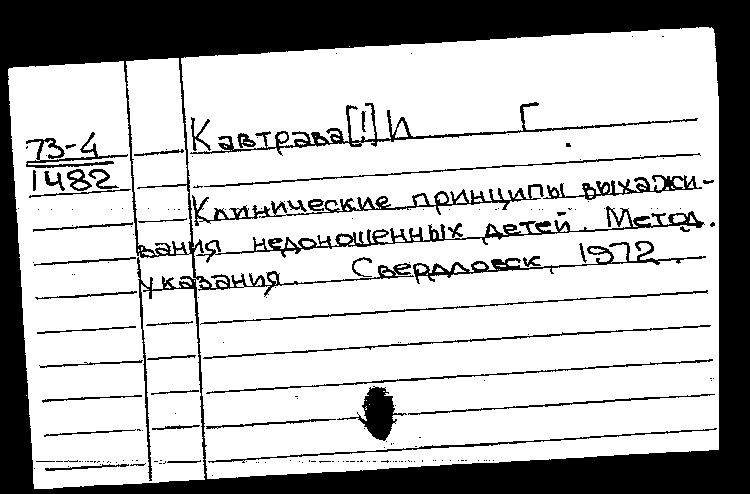 73-4
1482
Кавтрава[!] И Г.
Клинические принципы выхажи-
вания недоношенных детей. Метод.
указания. Свердловск, 1972.